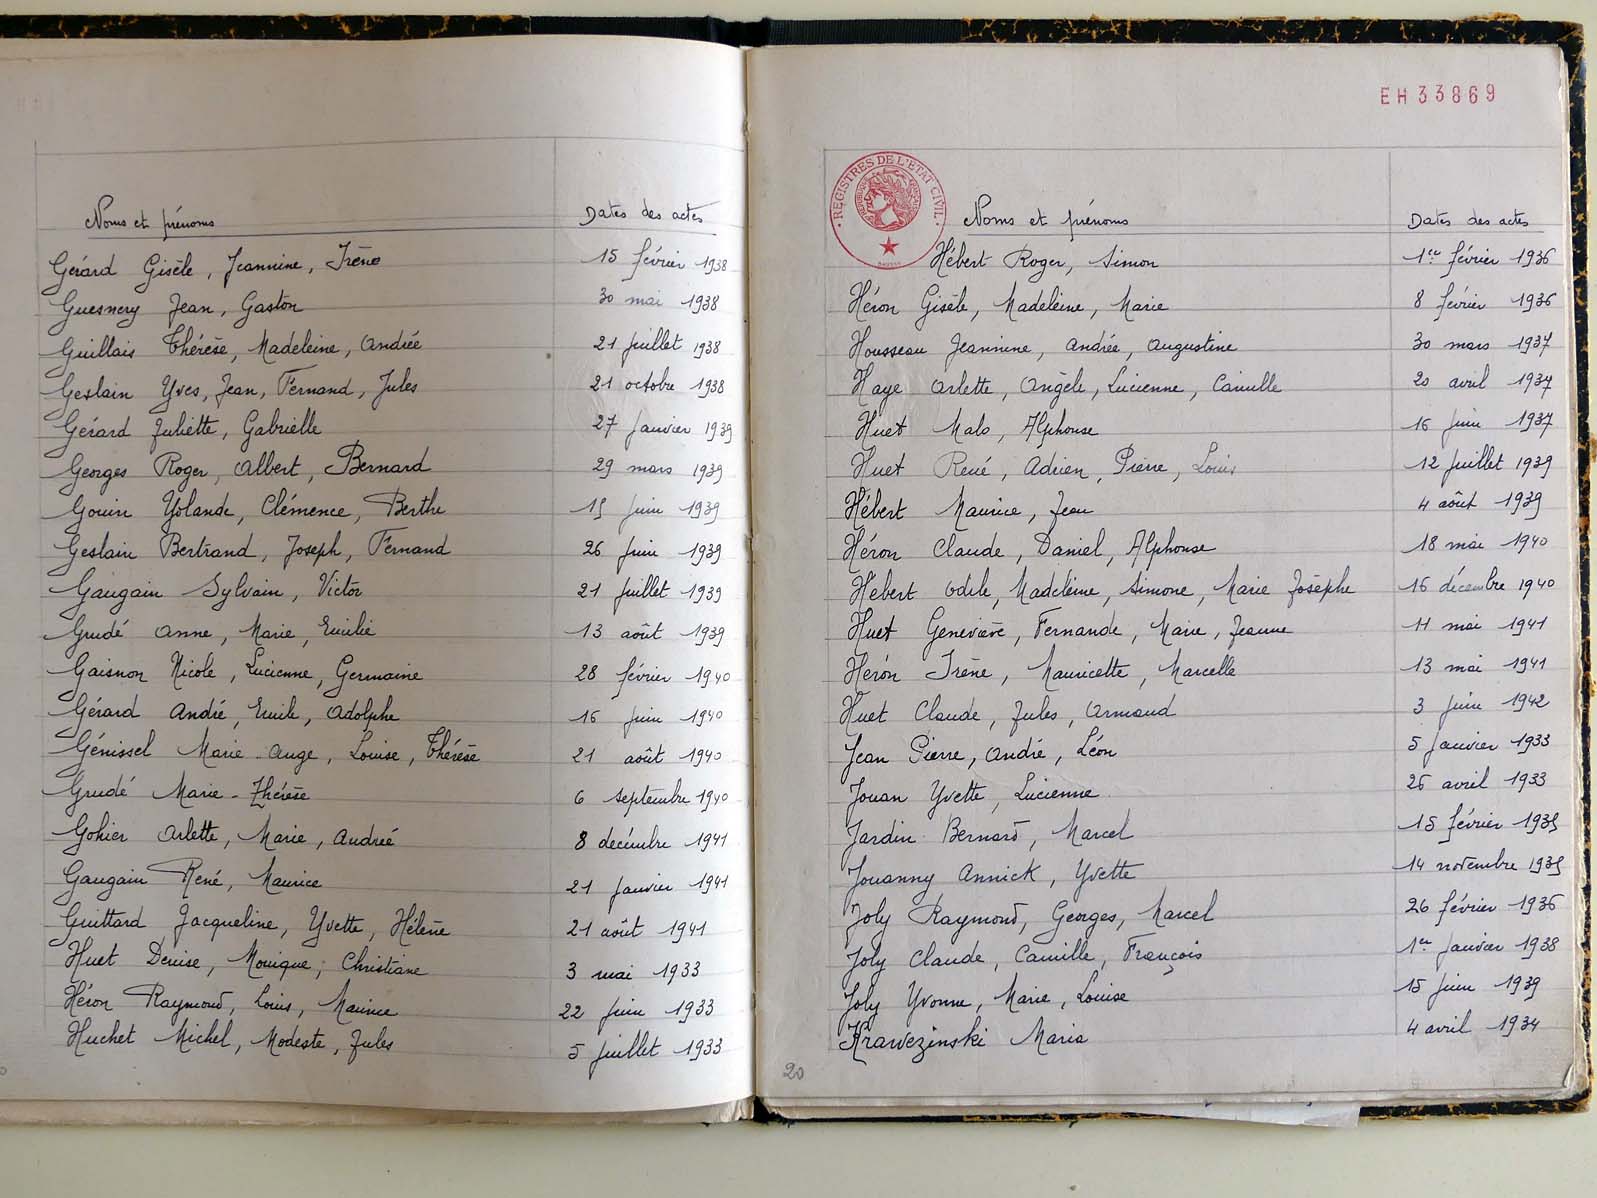 Noms et prénoms Dates des actes
Gérard Gisèle, Jeannine, Irène 15 février 1938
Guesnery Jean, Gaston 30 mai 1938
Guillais Thérèse, Madeleine, Andrée 21 juillet 1938
Geslain Yves, Jean, Fernand, Jules 21 octobre 1938
Gérard Juliette, Gabrielle 27 janvier 1939
Georges Roger, Albert, Bernard 29 mars 1939
Gouin Yolande, Clémence, Berthe 15 juin 1939
Geslain Bertrand, Joseph, Fernand 26 juin 1939
Gaugain Sylvain, Victor 21 juillet 1939
Grudé Anne, Marie, Emilie 13 août 1939
Gaisnon Nicole, Lucienne, Germaine 28 février 1940
Gérard André, Emile, Adolphe 16 juin 1940
Génissel Marie-Ange, Louise, Thérèse 21 août 1940
Grudé Marie-Thérèse 6 septembre 1940
Gohier Arlette, Marie, Andrée 8 décembre 1941
Gaugain René, Maurice 21 janvier 1941
Guittard Jacqueline, Yvette, Hélène 21 août 1941
Huet Denise, Monique, Christiane 3 mai 1933
Héron Raymond, Louis, Maurice 22 juin 1933
Huchet Michel, Modeste, Jules 5 juillet 1933
EH33869
REGISTRES DE L'ETAT CIVIL
Noms et prénoms Dates des actes
Hébert Roger, Simon 1er février 1936
Héron Gisèle, Madeleine, Marie 8 février 1936
Housseau Jeannine, Andrée, Augustine 30 mars 1937
Haye Arlette, Angèle, Lucienne, Camille 20 avril 1937
Huet Malo, Alphonse 16 juin 1937
Huet René, Adrien, Pierre, Louis 12 juillet 1939
Hébert Maurice, Jean 4 août 1939
Héron Claude, Daniel, Alphonse 18 mai 1940
Hébert Odile, Madeleine, Simone, Marie Josèphe 16 décembre 1940
Huet Geneviève, Fernande, Marie, Jeanne 11 mai 1941
Héron Irène, Mauricette, Marcelle 13 mai 1941
Huet Claude, Jules, Armand 3 juin 1942
Jean Pierre, André, Léon 5 janvier 1933
Jouan Yvette, Lucienne 26 avril 1933
Jardin Bernard, Marcel 15 février 1935
Jouanny Annick, Yvette 14 novembre 1935
Joly Raymond, Georges, Marcel 26 février 1936
Joly Claude, Camille, François 1er janvier 1938
Joly Yvonne, Marie, Louise 15 juin 1939
Krawezinski Maria 4 avril 1934
20